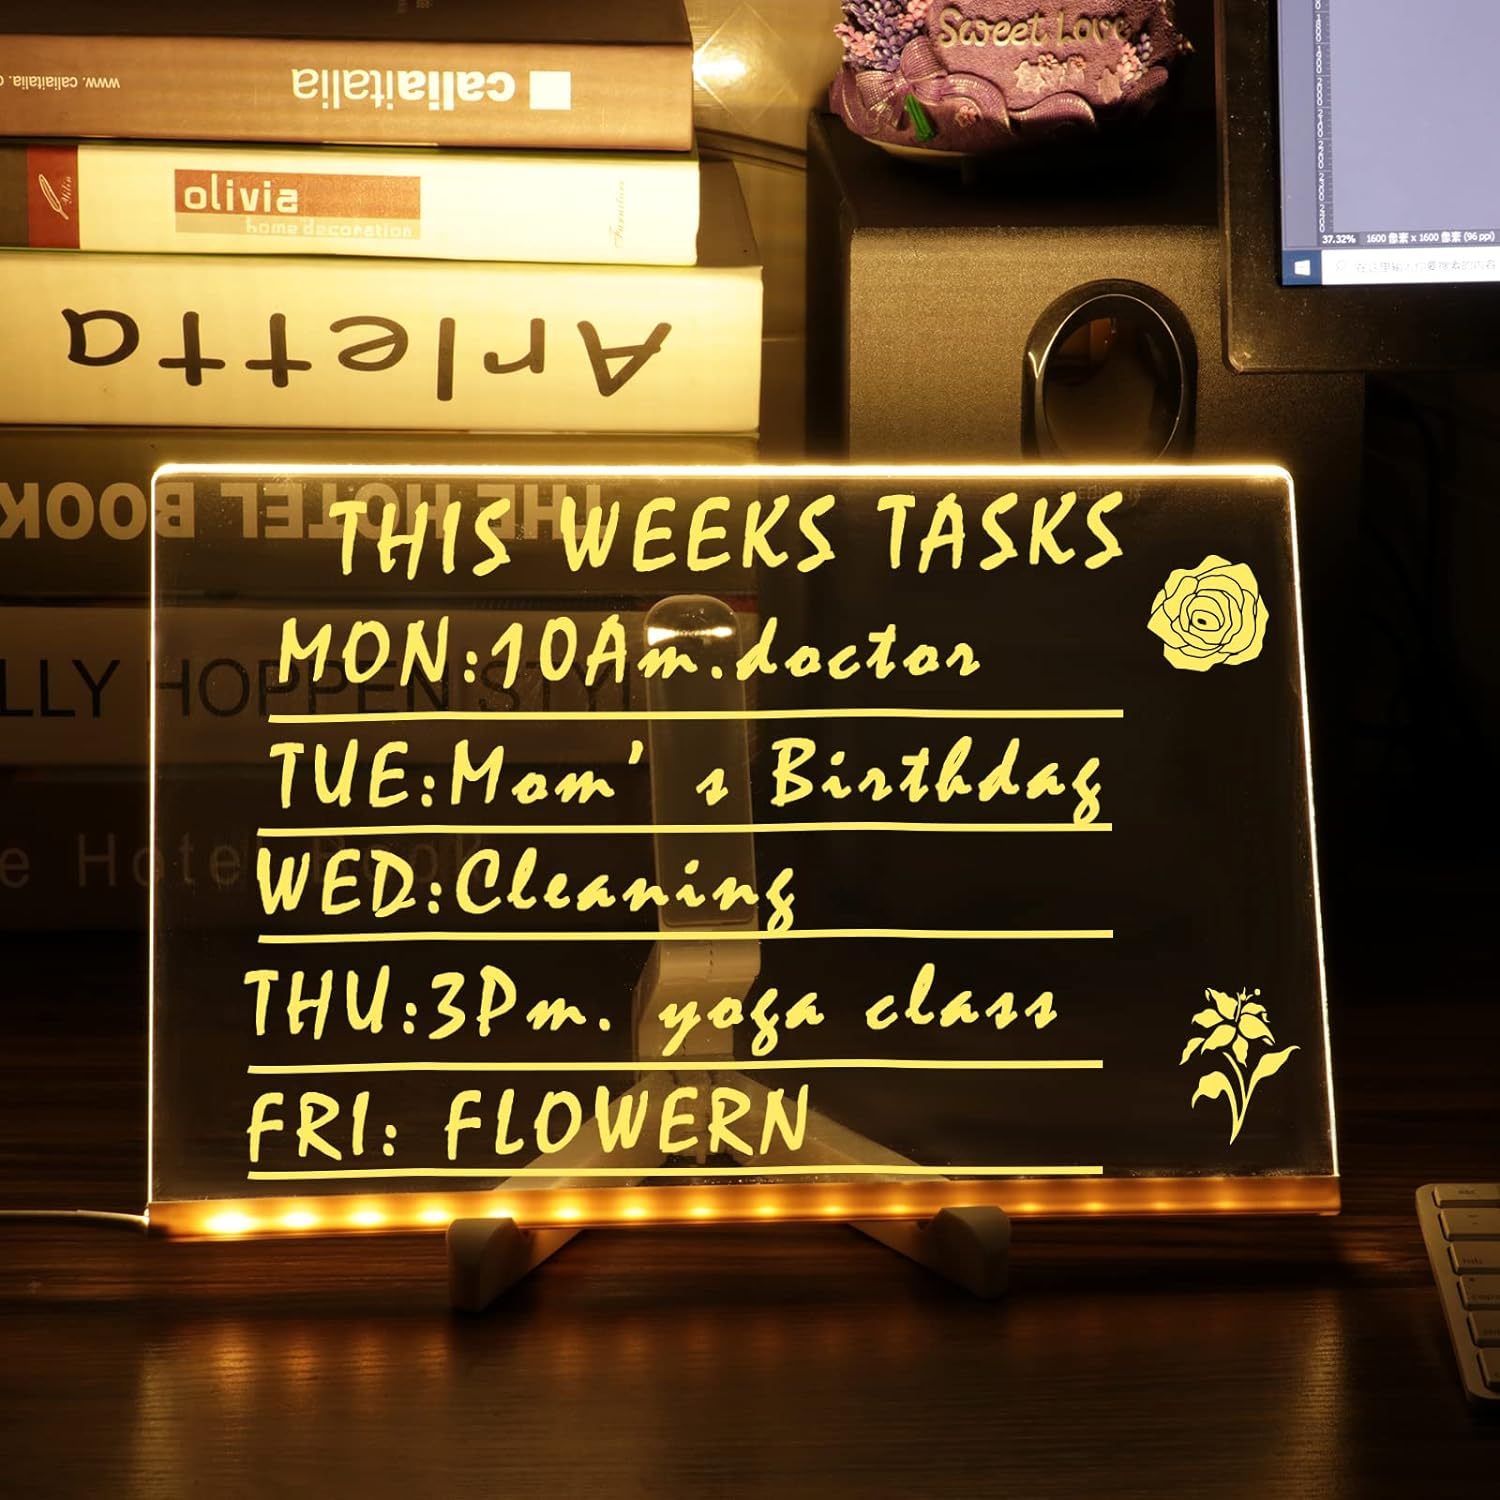 www.caliaitalia.
caliaitalia
olivia
home decoration
Arletta
THE HOTEL BOOK
LLY HOPPEN STYL
e Hotel Book
Sweet Love
37.32% 1600 像素 x 1600 像素 (96 ppi)
在这里输入你要搜索的内容
THIS WEEKS TASKS
MON:10Am.doctor
TUE:Mom's Birthday
WED:Cleaning
THU:3Pm. yoga class
FRI: FLOWERN